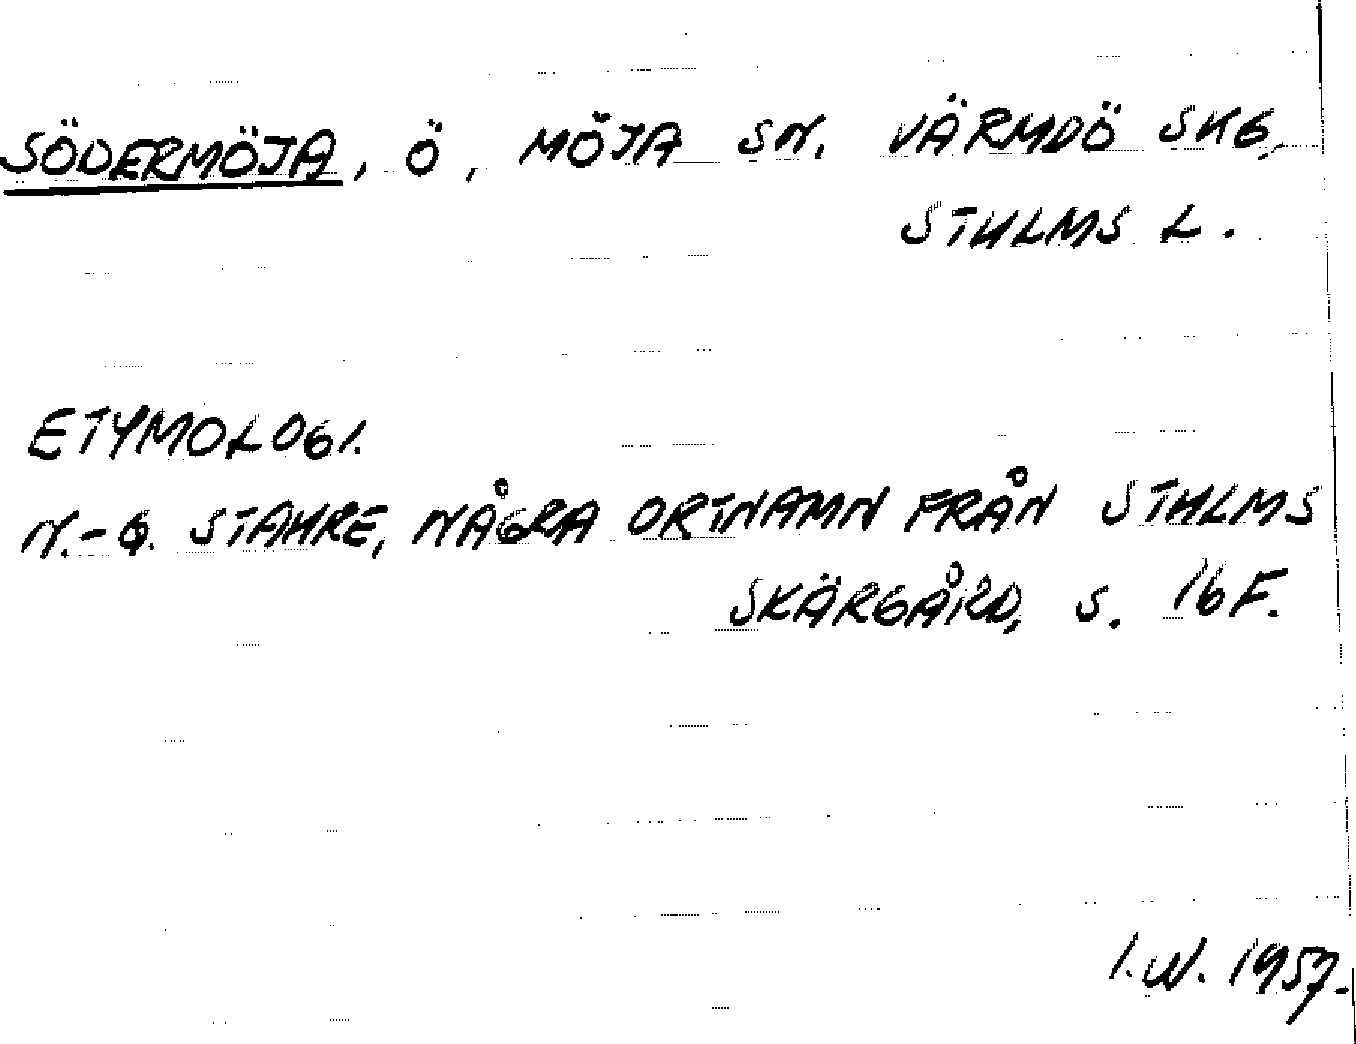 SÖDERMÖJA, Ö, MÖJA SN. VÄRMDÖ SKG,
STHLMS L.
ETYMOLOGI.
N.-G. STAHRE, NÅGRA ORTNAMN FRÅN STHLMS
SKÄRGÅRD, S. 16 F.
I.W. 1957.